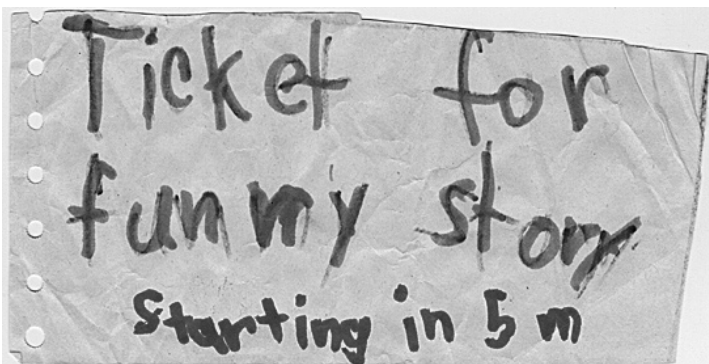 Ticket for
funny story
starting in 5 m